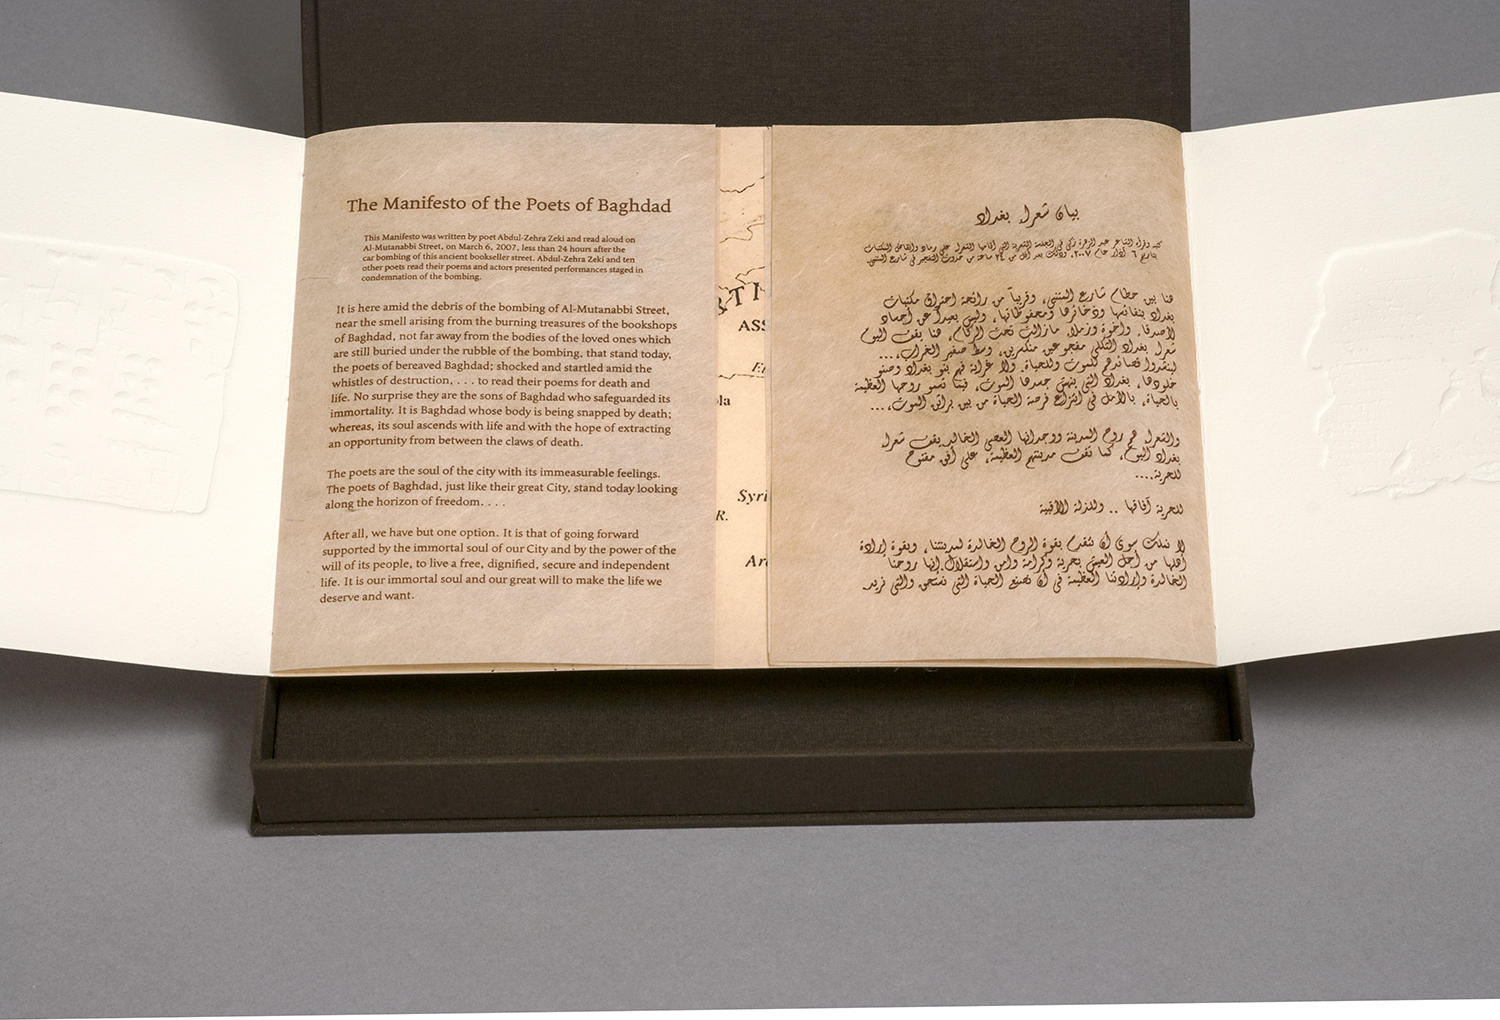 The Manifesto of the Poets of Baghdad
This Manifesto was written by poet Abdul-Zehra Zeki and read aloud on
Al-Mutanabbi Street, on March 6, 2007, less than 24 hours after the
car bombing of this ancient bookseller street. Abdul-Zehra Zeki and ten
other poets read their poems and actors presented performances staged in
condemnation of the bombing.
It is here amid the debris of the bombing of Al-Mutanabbi Street,
near the smell arising from the burning treasures of the bookshops
of Baghdad, not far away from the bodies of the loved ones which
are still buried under the rubble of the bombing, that stand today,
the poets of bereaved Baghdad; shocked and startled amid the
whistles of destruction, . . . to read their poems for death and
life. No surprise they are the sons of Baghdad who safeguarded its
immortality. It is Baghdad whose body is being snapped by death;
whereas, its soul ascends with life and with the hope of extracting
an opportunity from between the claws of death.
The poets are the soul of the city with its immeasurable feelings.
The poets of Baghdad, just like their great City, stand today looking
along the horizon of freedom. . . .
After all, we have but one option. It is that of going forward
supported by the immortal soul of our City and by the power of the
will of its people, to live a free, dignified, secure and independent
life. It is our immortal soul and our great will to make the life we
deserve and want.
ASS
Syri
R.
بيان شعراء بغداد
هنا بين حطام شارع المتنبي، وقريباً من رائحة احتراق مكتبات
بغداد بنفائسها وذخائرها ومخطوطاتها، وليس بعيداً عن أجساد
لأصدقاء وأخوة وزملاء مازالت تحت الركام، هنا يقف اليوم
شعراء بغداد الثكلى مفجوعين منكسرين، وسط صفير الخراب،...
لينشدوا قصائدهم للموت وللحياة. ولا غرابة فهم بنو بغداد وصنو
خلودها، بغداد التي ينهش جسدها الموت، فيما تسمو روحها العظيمة
بالحياة، بالأمل في انتزاع فرصة الحياة من بين براثن الموت،...
والشعراء هم روح المدينة ووجدانها العصي الخالد يقف شعراء
بغداد اليوم، كما تقف مدينتهم العظيمة، على أفق مفتوح
للحرية....
للحرية آفاقها .. وللذلة الأقبية
لا نملك سوى أن نتقدم بقوة الروح الخالدة لمدينتنا، وبقوة إرادة
أهلها من أجل العيش بحرية وكرامة وأمن واستقلال إنها روحنا
الخالدة وإرادتنا العظيمة في أن نصنع الحياة التي نستحق والتي نريد.